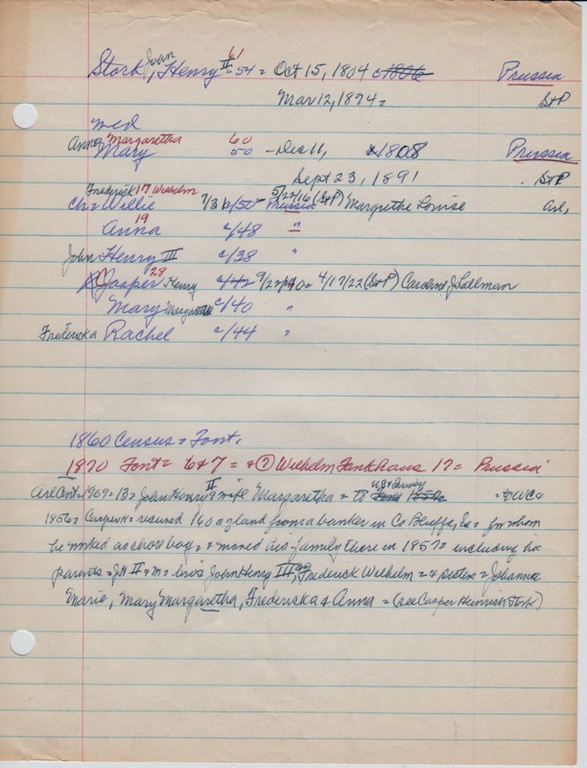 Stork, John Henry II 61 - 54 = Oct 15, 1804 c1806 Prussia
Mar 12, 1894 = B+P
med
Anna Margaretha Mary 60 50 - Dec 11, 1808 Prussia
Sept 23, 1891 B+P
Frederick 17 Wilhelm
Ch = Willie 7/31/50 = Prussia 5/22/16 (B+P) Margrethe Louise Arl,
Anna 19 c/48 "
John Henry III c/38 "
Casper 28 Henry c/42 9/22/40 = 4/17/22 (B+P) Caroline J Lallman
Mary Margaretha c/40 "
Frederiska Rachel c/44 "
1860 Census = Font.
1870 Font = 6+7 = + Wilhelm Fankhaus 17 = Prussia
Arl Cent = 1969 = 13 = John Henry II + wife Margaretha = to U.S. = WC
1856 = Casper H = secured 160 a of land from a banker in Co Bluffs, Ia = for whom
he worked as chore boy = + moved his family there in 1857 = including his
parents = JH II + M = bros John Henry III, Frederick Wilhelm = + sisters = Johanna
Marie, Mary Margaretha, Frederiska + Anna = (see Casper Heinrich Stork)